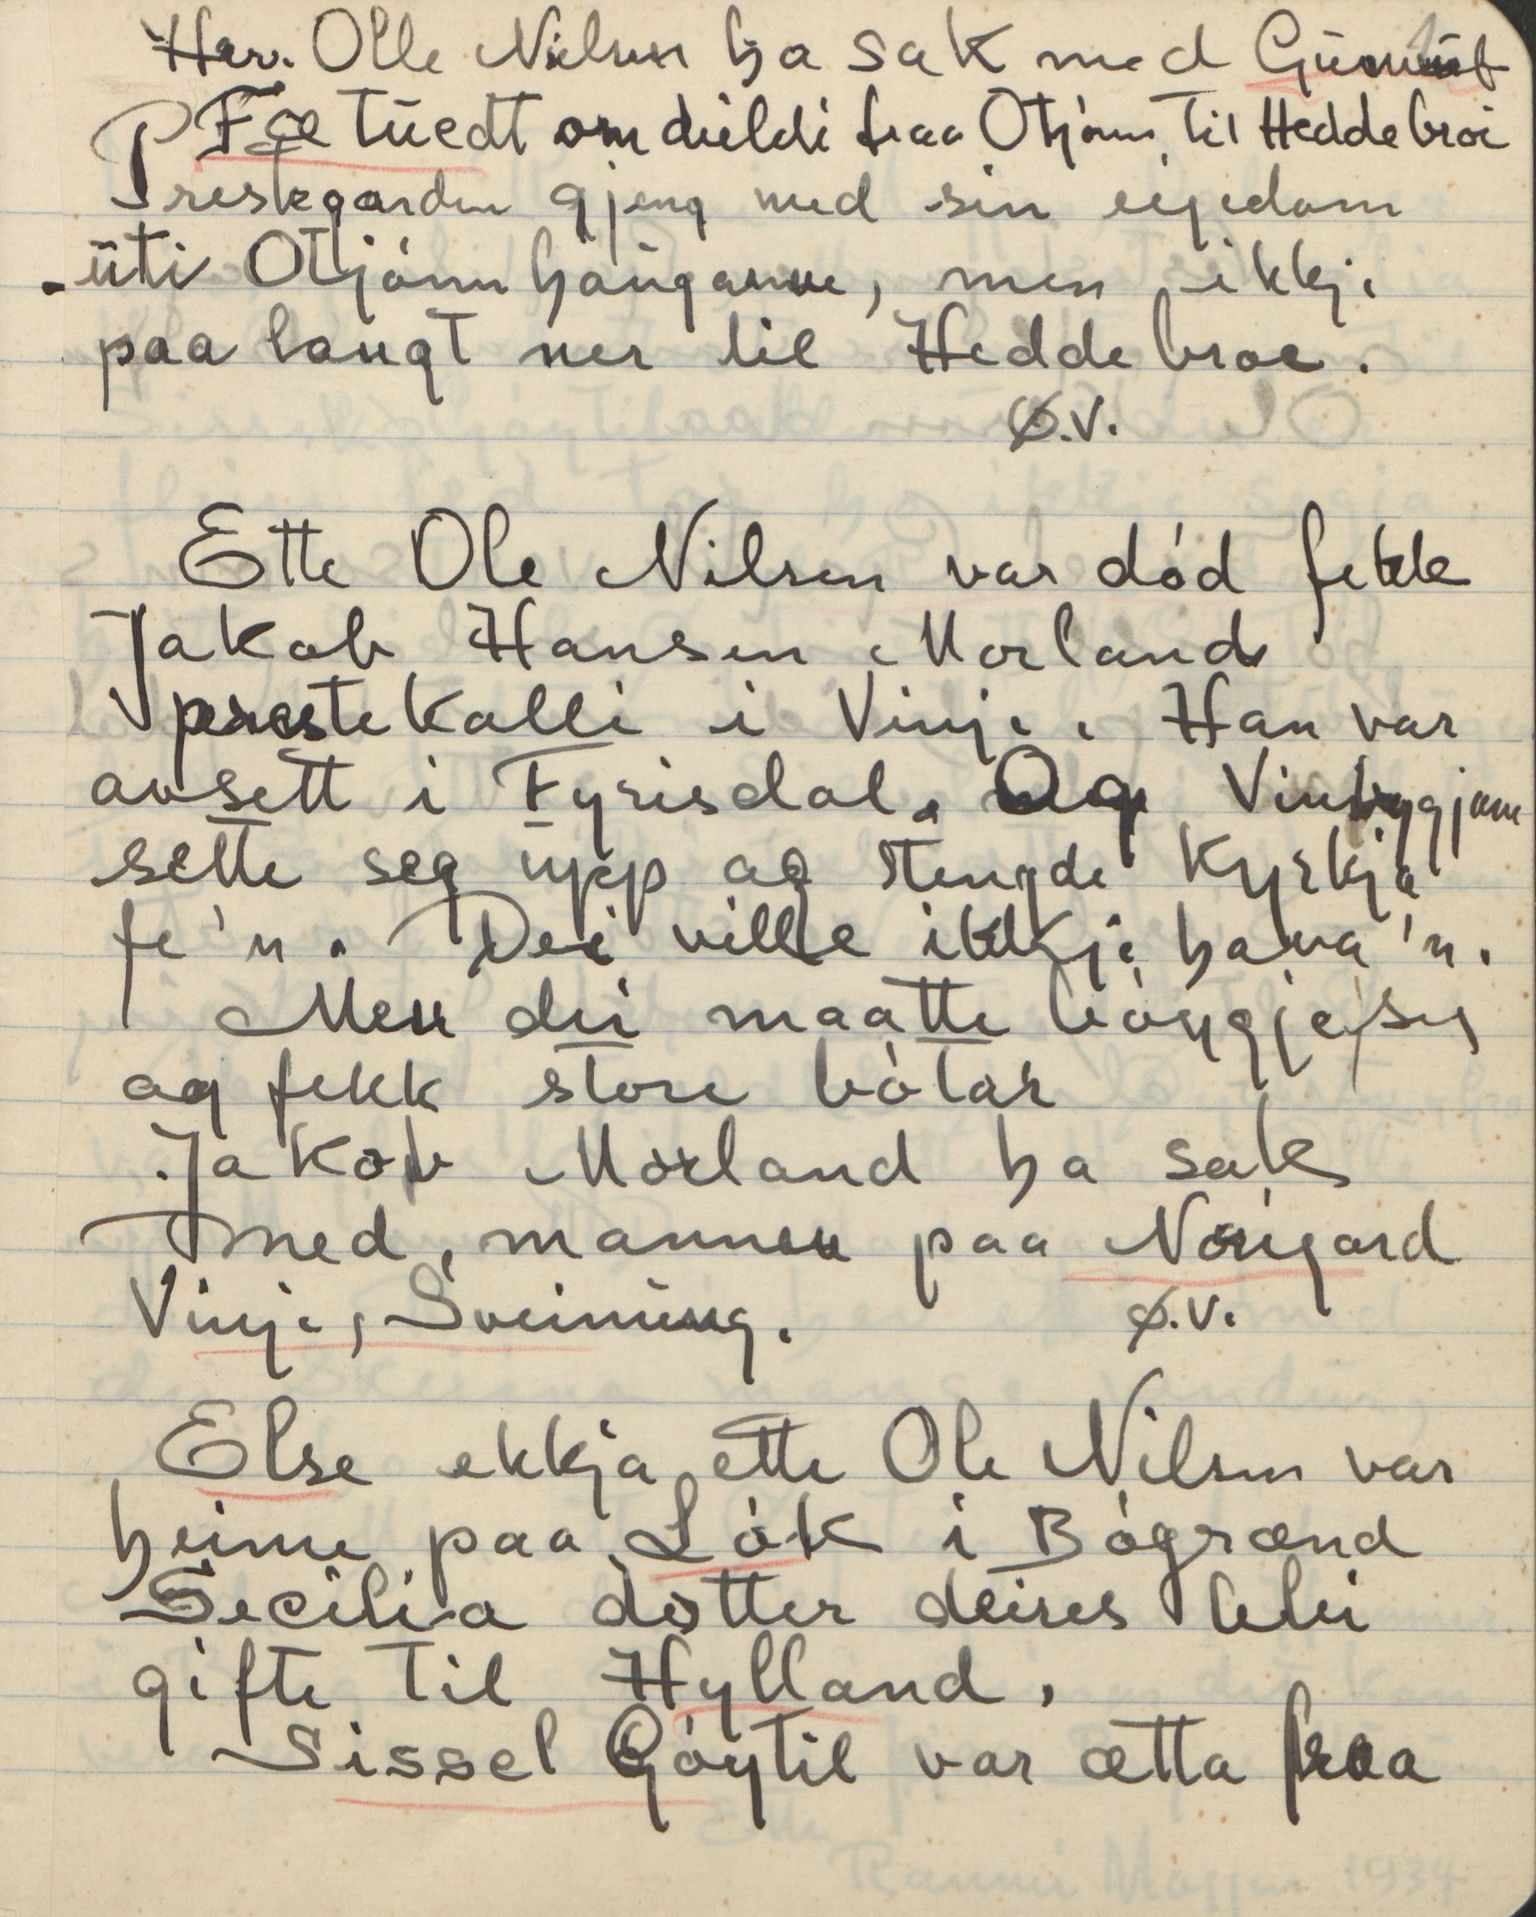 Her. Olle Nielsen ha sak med Gunnuf
Fætuedt om deildi fraa Otjönn til Heddebroi
Prestegarden gjeng med sin eigedom
uti Otjönnhauganne, men ikkji
paa langt ner til Heddebroe.
Ø.V.
Ette Ole Nilsen var död fekk
Jakob Hansen Morland
prestekalli i Vinje. Han var
avsett i Fyrisdal. Og Vinbyggjane
sette seg upp og stengde Kyrkja
fe'n. Dei ville ikkje hava'n.
Men dei maatte böygje seg
og fekk store bötar
Jakob Morland ha sak
med mannen paa Norigard
Vinje, Sveinung.
Ø.V.
Else ekkja ette Ole Nilsen var
heime paa Lök i Bögrænd
Secilia dotter deires blei
gifte til Hylland.
Sissel Göytil var ætta fraa